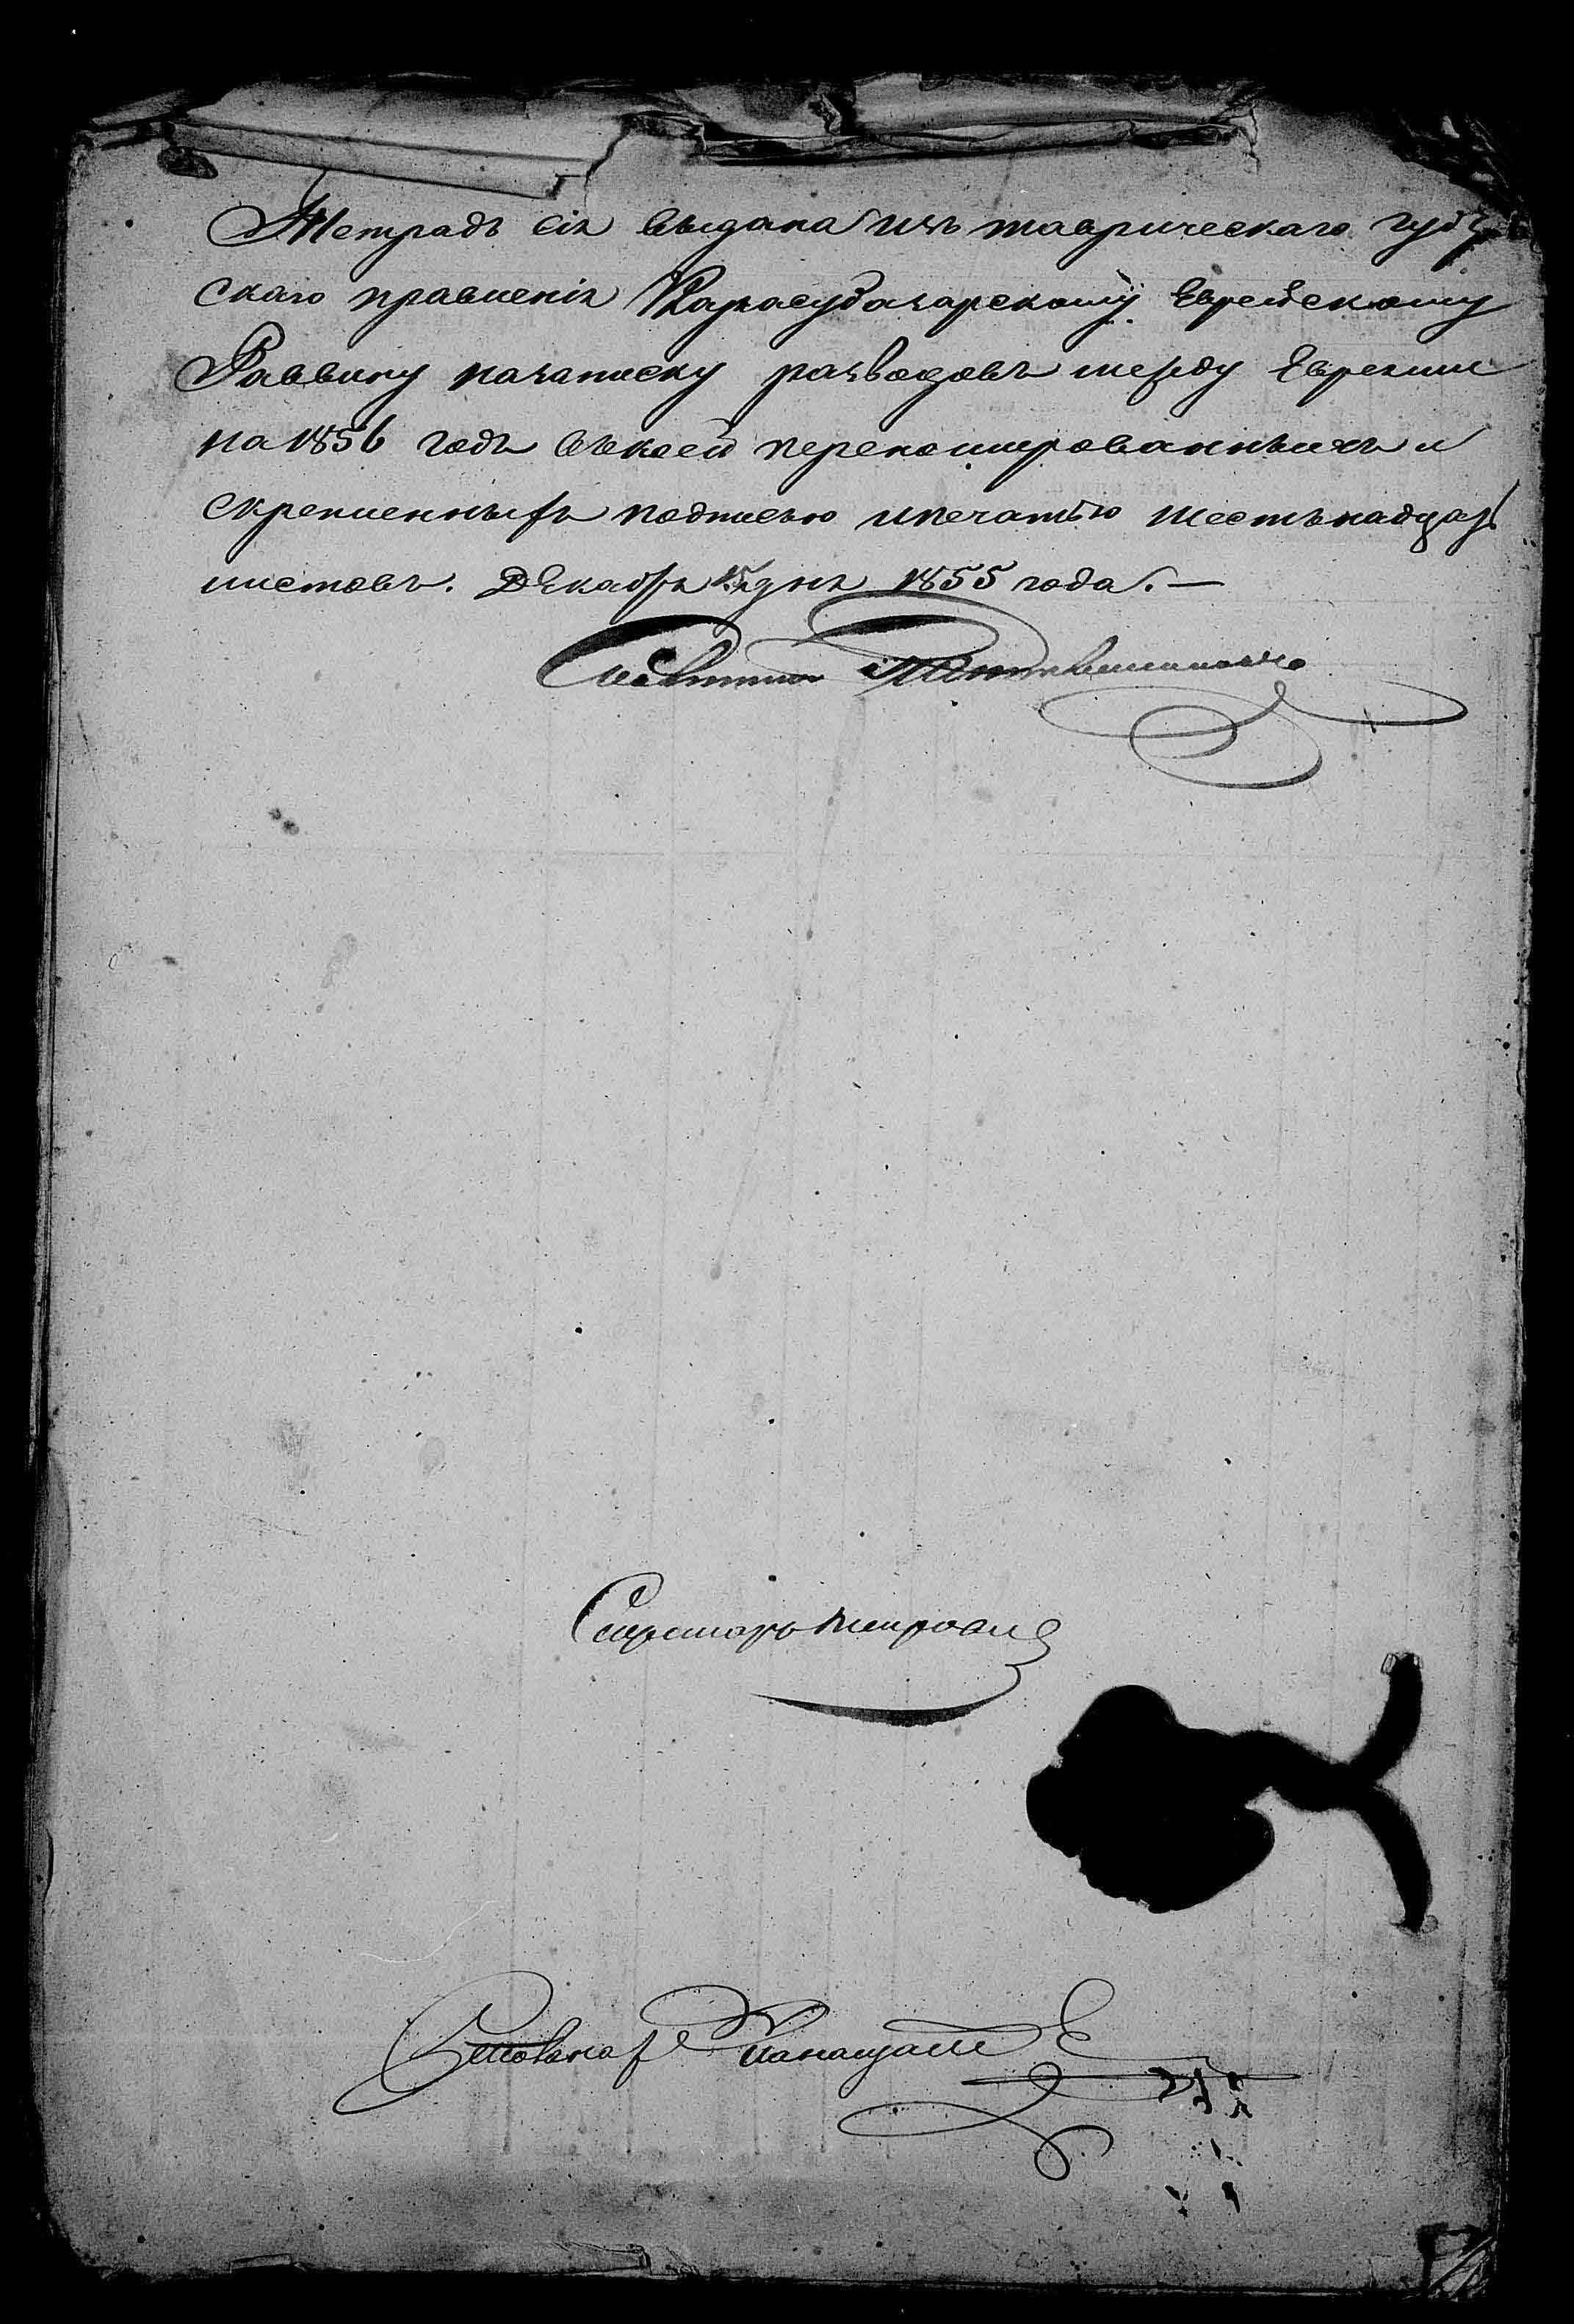 Тетрадь сія выдана изъ таврическаго губ
скаго правленія Карасубазарскому Еврейскому
Раввину назаписку разводовъ между Евреями
на 1856 годъ въкоей переномированныхъ и
скрепленныхъ подписью ипечатью шестьнадцать
листовъ. Декабря 15 дня 1855 года. —
Советникъ
Секретарь